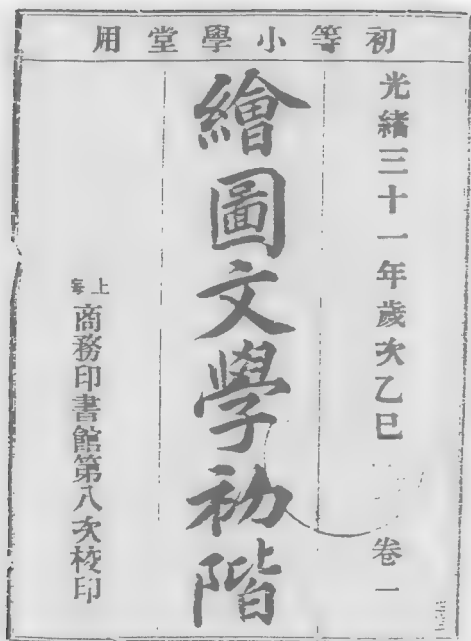 初等小學堂用
光緒三十一年歲次乙巳
卷一
繪圖文學初階
上海
商務印書館第八次校印